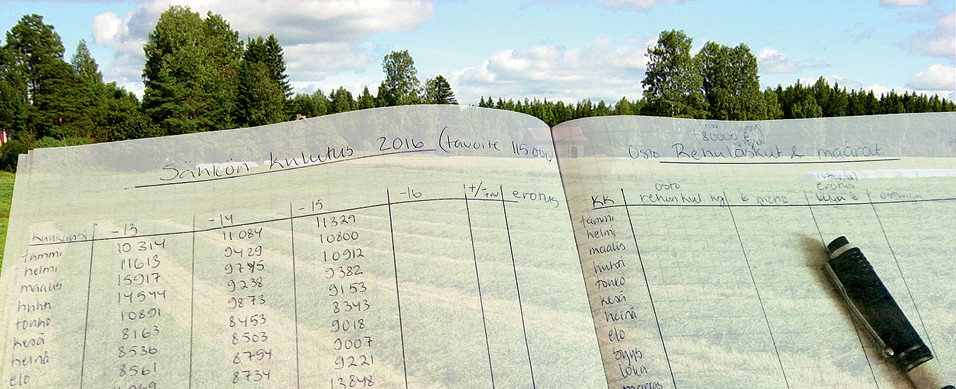 Sähkön kulutus 2016 (tavoite 115 000
kuukausi -13 -14 -15 -16 +/- erotus
tammi 10314 11084 11329
helmi 11613 9429 10800
maalis 15917 9795 10912
huhti 14544 9238 9382
touko 10891 9873 9153
kesä 8163 8453 8343
heinä 8536 8503 9018
elo 8561 8794 9007
8734 9221
13848
80000 €
osto Rehulaskut & määrät
osto erotus
KK rehunkul kg € meno
tammi
helmi
maalis
huhti
touko
kesä
heinä
elo
syys
loka
marras